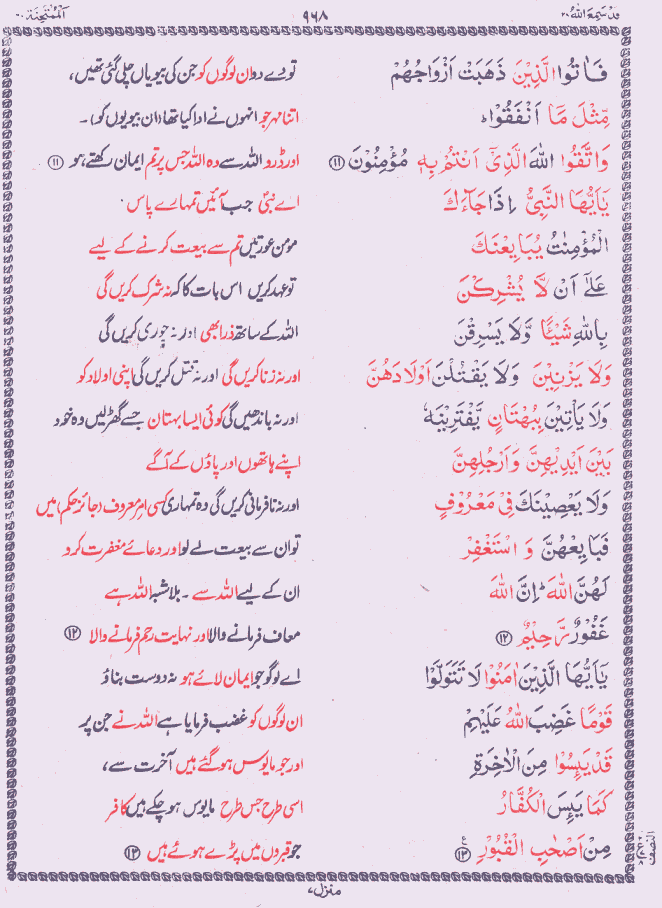 قد سمع الله ۲۸ ۹۶۸ الممتحنة ۶۰
فَاٰتُوا الَّذِيْنَ ذَهَبَتْ اَزْوَاجُهُمْ تو دے دو ان لوگوں کو جن کی بیویاں چلی گئی تھیں،
مِّثْلَ مَاۤ اَنْفَقُوْا ؕ اتنا مہر جو انہوں نے ادا کیا تھا (ان بیویوں کو)۔
وَاتَّقُوا اللّٰهَ الَّذِيْۤ اَنْتُمْ بِهٖ مُؤْمِنُوْنَ ۱۱ اور ڈرو اللہ سے وہ اللہ جس پر تم ایمان رکھتے ہو ۱۱
يٰۤاَيُّهَا النَّبِيُّ اِذَا جَآءَكَ اے نبیؐ جب آئیں تمہارے پاس
الْمُؤْمِنٰتُ يُبَايِعْنَكَ مومن عورتیں تم سے بیعت کرنے کے لیے
عَلٰۤى اَنْ لَّا يُشْرِكْنَ تو عہد کریں اس بات کا کہ نہ شرک کریں گی
بِاللّٰهِ شَيْـًٔا وَّلَا يَسْرِقْنَ اللہ کے ساتھ ذرا بھی اور نہ چوری کریں گی
وَلَا يَزْنِيْنَ وَلَا يَقْتُلْنَ اَوْلَادَهُنَّ اور نہ زنا کریں گی اور نہ قتل کریں گی اپنی اولاد کو
وَلَا يَاْتِيْنَ بِبُهْتَانٍ يَّفْتَرِيْنَهٗ اور نہ باندھیں گی کوئی ایسا بہتان جسے گھڑ لیں وہ خود
بَيْنَ اَيْدِيْهِنَّ وَاَرْجُلِهِنَّ اپنے ہاتھوں اور پاؤں کے آگے
وَلَا يَعْصِيْنَكَ فِيْ مَعْرُوْفٍ اور نہ نافرمانی کریں گی وہ تمہاری کسی امرِ معروف (جائز حکم) میں
فَبَايِعْهُنَّ وَاسْتَغْفِرْ تو ان سے بیعت لے لو اور دعائے مغفرت کرو
لَهُنَّ اللّٰهَ ؕ اِنَّ اللّٰهَ ان کے لیے اللہ سے۔ بلاشبہ اللہ ہے
غَفُوْرٌ رَّحِيْمٌ ۱۲ معاف فرمانے والا اور نہایت رحم فرمانے والا ۱۲
يٰۤاَيُّهَا الَّذِيْنَ اٰمَنُوْا لَا تَتَوَلَّوْا اے لوگو جو ایمان لائے ہو نہ دوست بناؤ
قَوْمًا غَضِبَ اللّٰهُ عَلَيْهِمْ ان لوگوں کو غضب فرمایا ہے اللہ نے جن پر
قَدْ يَئِسُوْا مِنَ الْاٰخِرَةِ اور جو مایوس ہو گئے ہیں آخرت سے،
كَمَا يَئِسَ الْكُفَّارُ اسی طرح جس طرح مایوس ہو چکے ہیں کافر
مِنْ اَصْحٰبِ الْقُبُوْرِ ۱۳ جو قبروں میں پڑے ہوئے ہیں ۱۳
منزل ۷